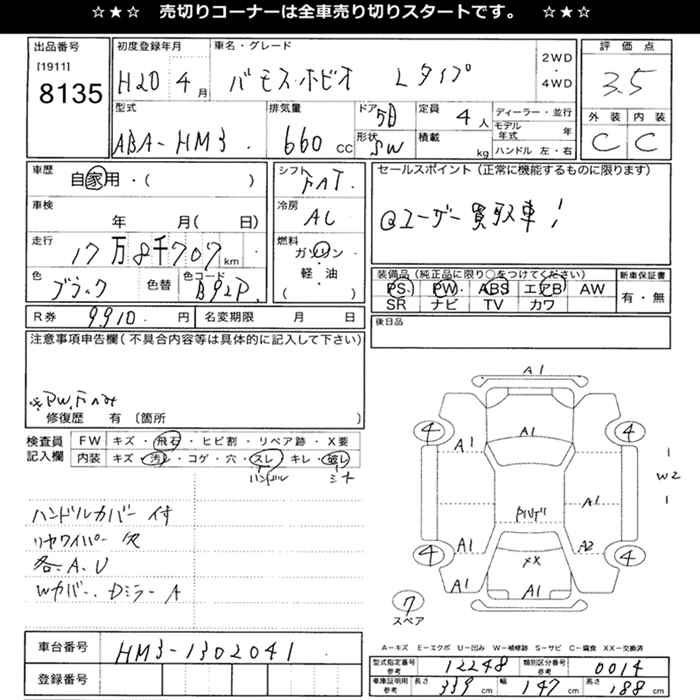 ☆★☆ 売切りコーナーは全車売り切りスタートです。 ☆★☆
出品番号
[1911]
8135
初度登録年月
H20 4月
車名・グレード
バモスホビオ Lタイプ
2WD
・
4WD
評価点
3.5
外装 内装
C C
型式
ABA-HM3
排気量
660 cc
ドア
5D
形状
SW
定員
4人
積載
kg
ディーラー・並行
モデル年式 年
ハンドル 左・右
車歴
自家用・( )
シフト
FAT
セールスポイント(正常に機能するものに限ります)
@ユーザー買取車!
車検
年 月( 日)
冷房
AC
走行
17万8千707km
燃料
ガソリン
・
軽・油
( )
色
ブラック
色替
色コード
B92P
装備品(純正品に限り○をつけてください)
PS PW ABS エアB AW
SR ナビ TV カワ
新車保証書
有・無
R券 9910円
名変期限 月 日
後日品
注意事項申告欄(不具合内容等は具体的に記入して下さい)
※PW.Fのみ
修復歴 有 〔箇所 〕
検査員記入欄
FW キズ・飛石・ヒビ割・リペア跡・X要
内装 キズ・汚レ・コゲ・穴・スレ・キレ・破レ
ハンドル シート
ハンドルカバー付
リヤワイパー欠
各.A.U
Wカバー.Dミラー A
A1
4 A1 4
A1
W2
A1
A1 A2
4 4
XX
A1 A1
7
スペア
A=キズ E=エクボ U=凹み W=補修跡 S=サビ C=腐食 XX=交換済
車台番号 HM3-1302041
登録番号
型式指定番号 参考 12248
類別区分番号 参考 0014
車庫証明用 参考 長さ 339 cm 幅 147 cm 高さ 188 cm